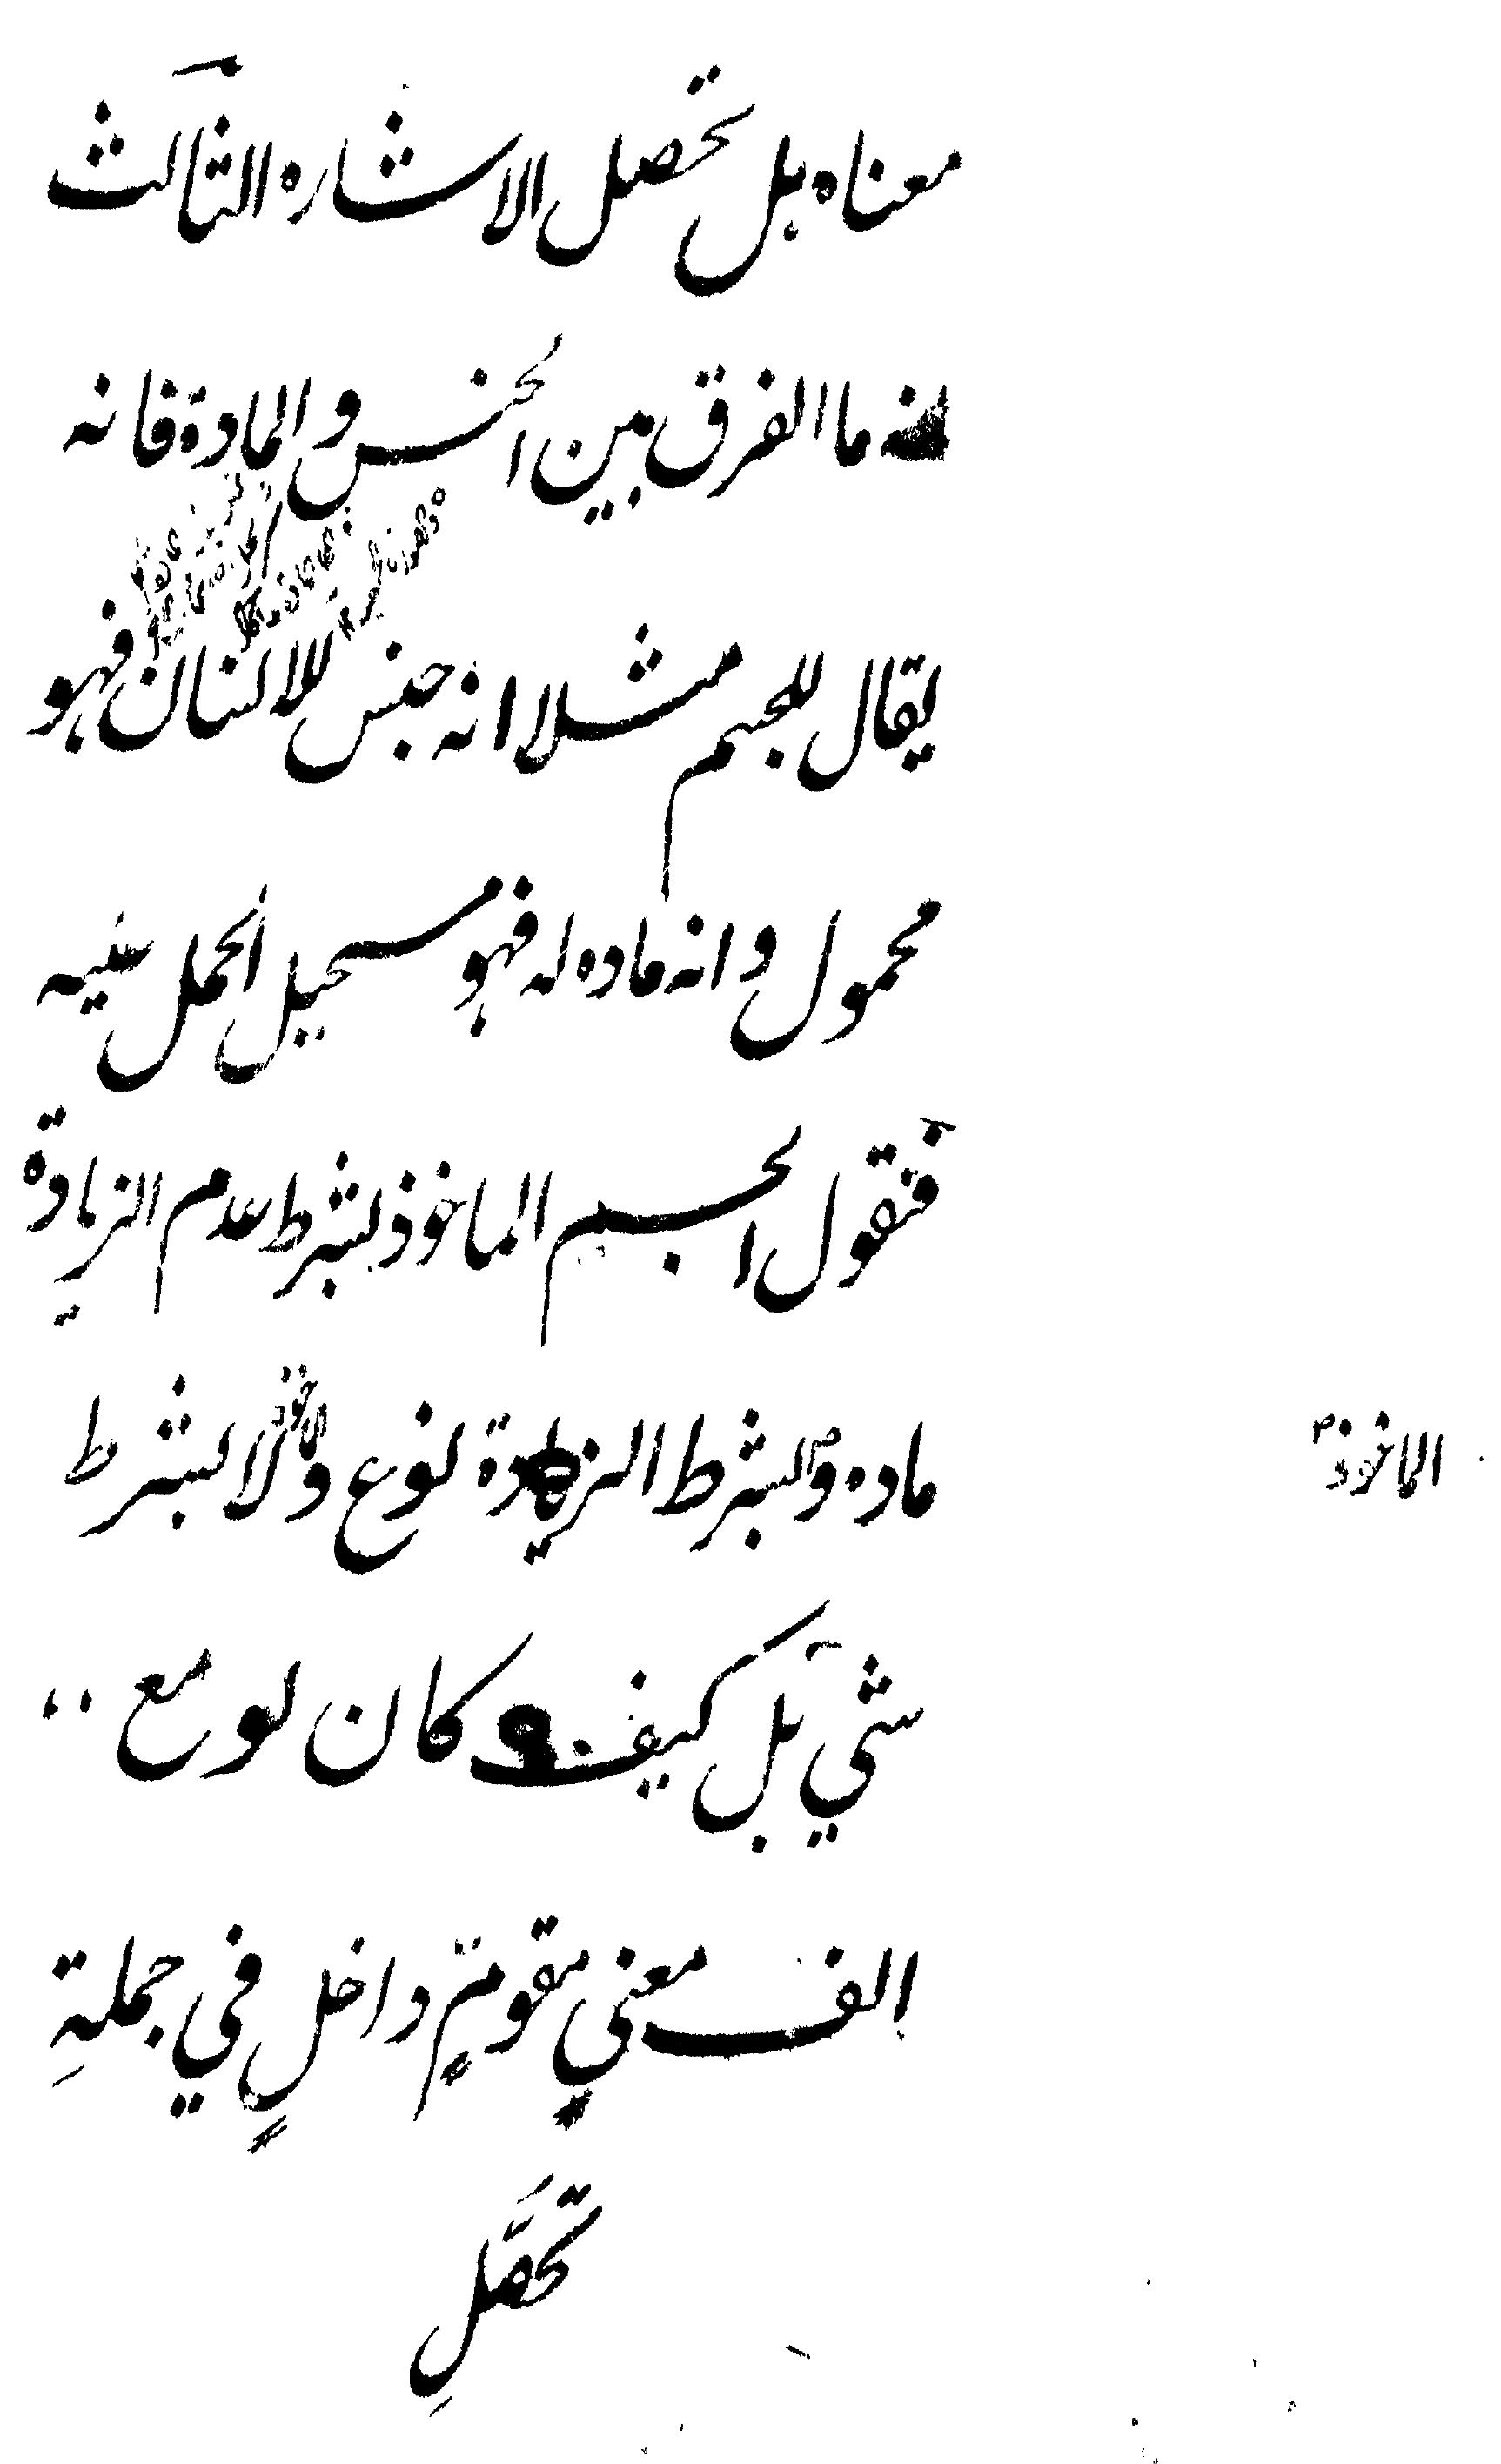 معناه بل تحصيل الاشاره الثالث
انه ما الفرق بين الجنس والمادة فانه
يقال للجسم مثلا انه جنس للانسان فهو
محمول وانه ماده له فهو مستحيل الحمل عليه
فنقول الجسم الماخوذ بشرط عدم الزيادة
ماده وبشرط الزيادة نوع ولا بشرط
الماخوذ
شي بل كيف كان لو مع
الف معني مقومٍ داخلٍ في جملةِ
تحصَّلِ